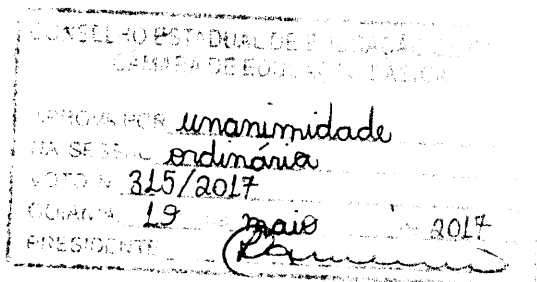 CONSELHO ESTADUAL DE EDUCAÇÃO
CÂMARA DE EDUCAÇÃO BÁSICA
APROVA POR unanimidade
NA SESSÃO ordinária
VOTO N 315/2017
GOIÂNIA 19 maio 2017
PRESIDENTE